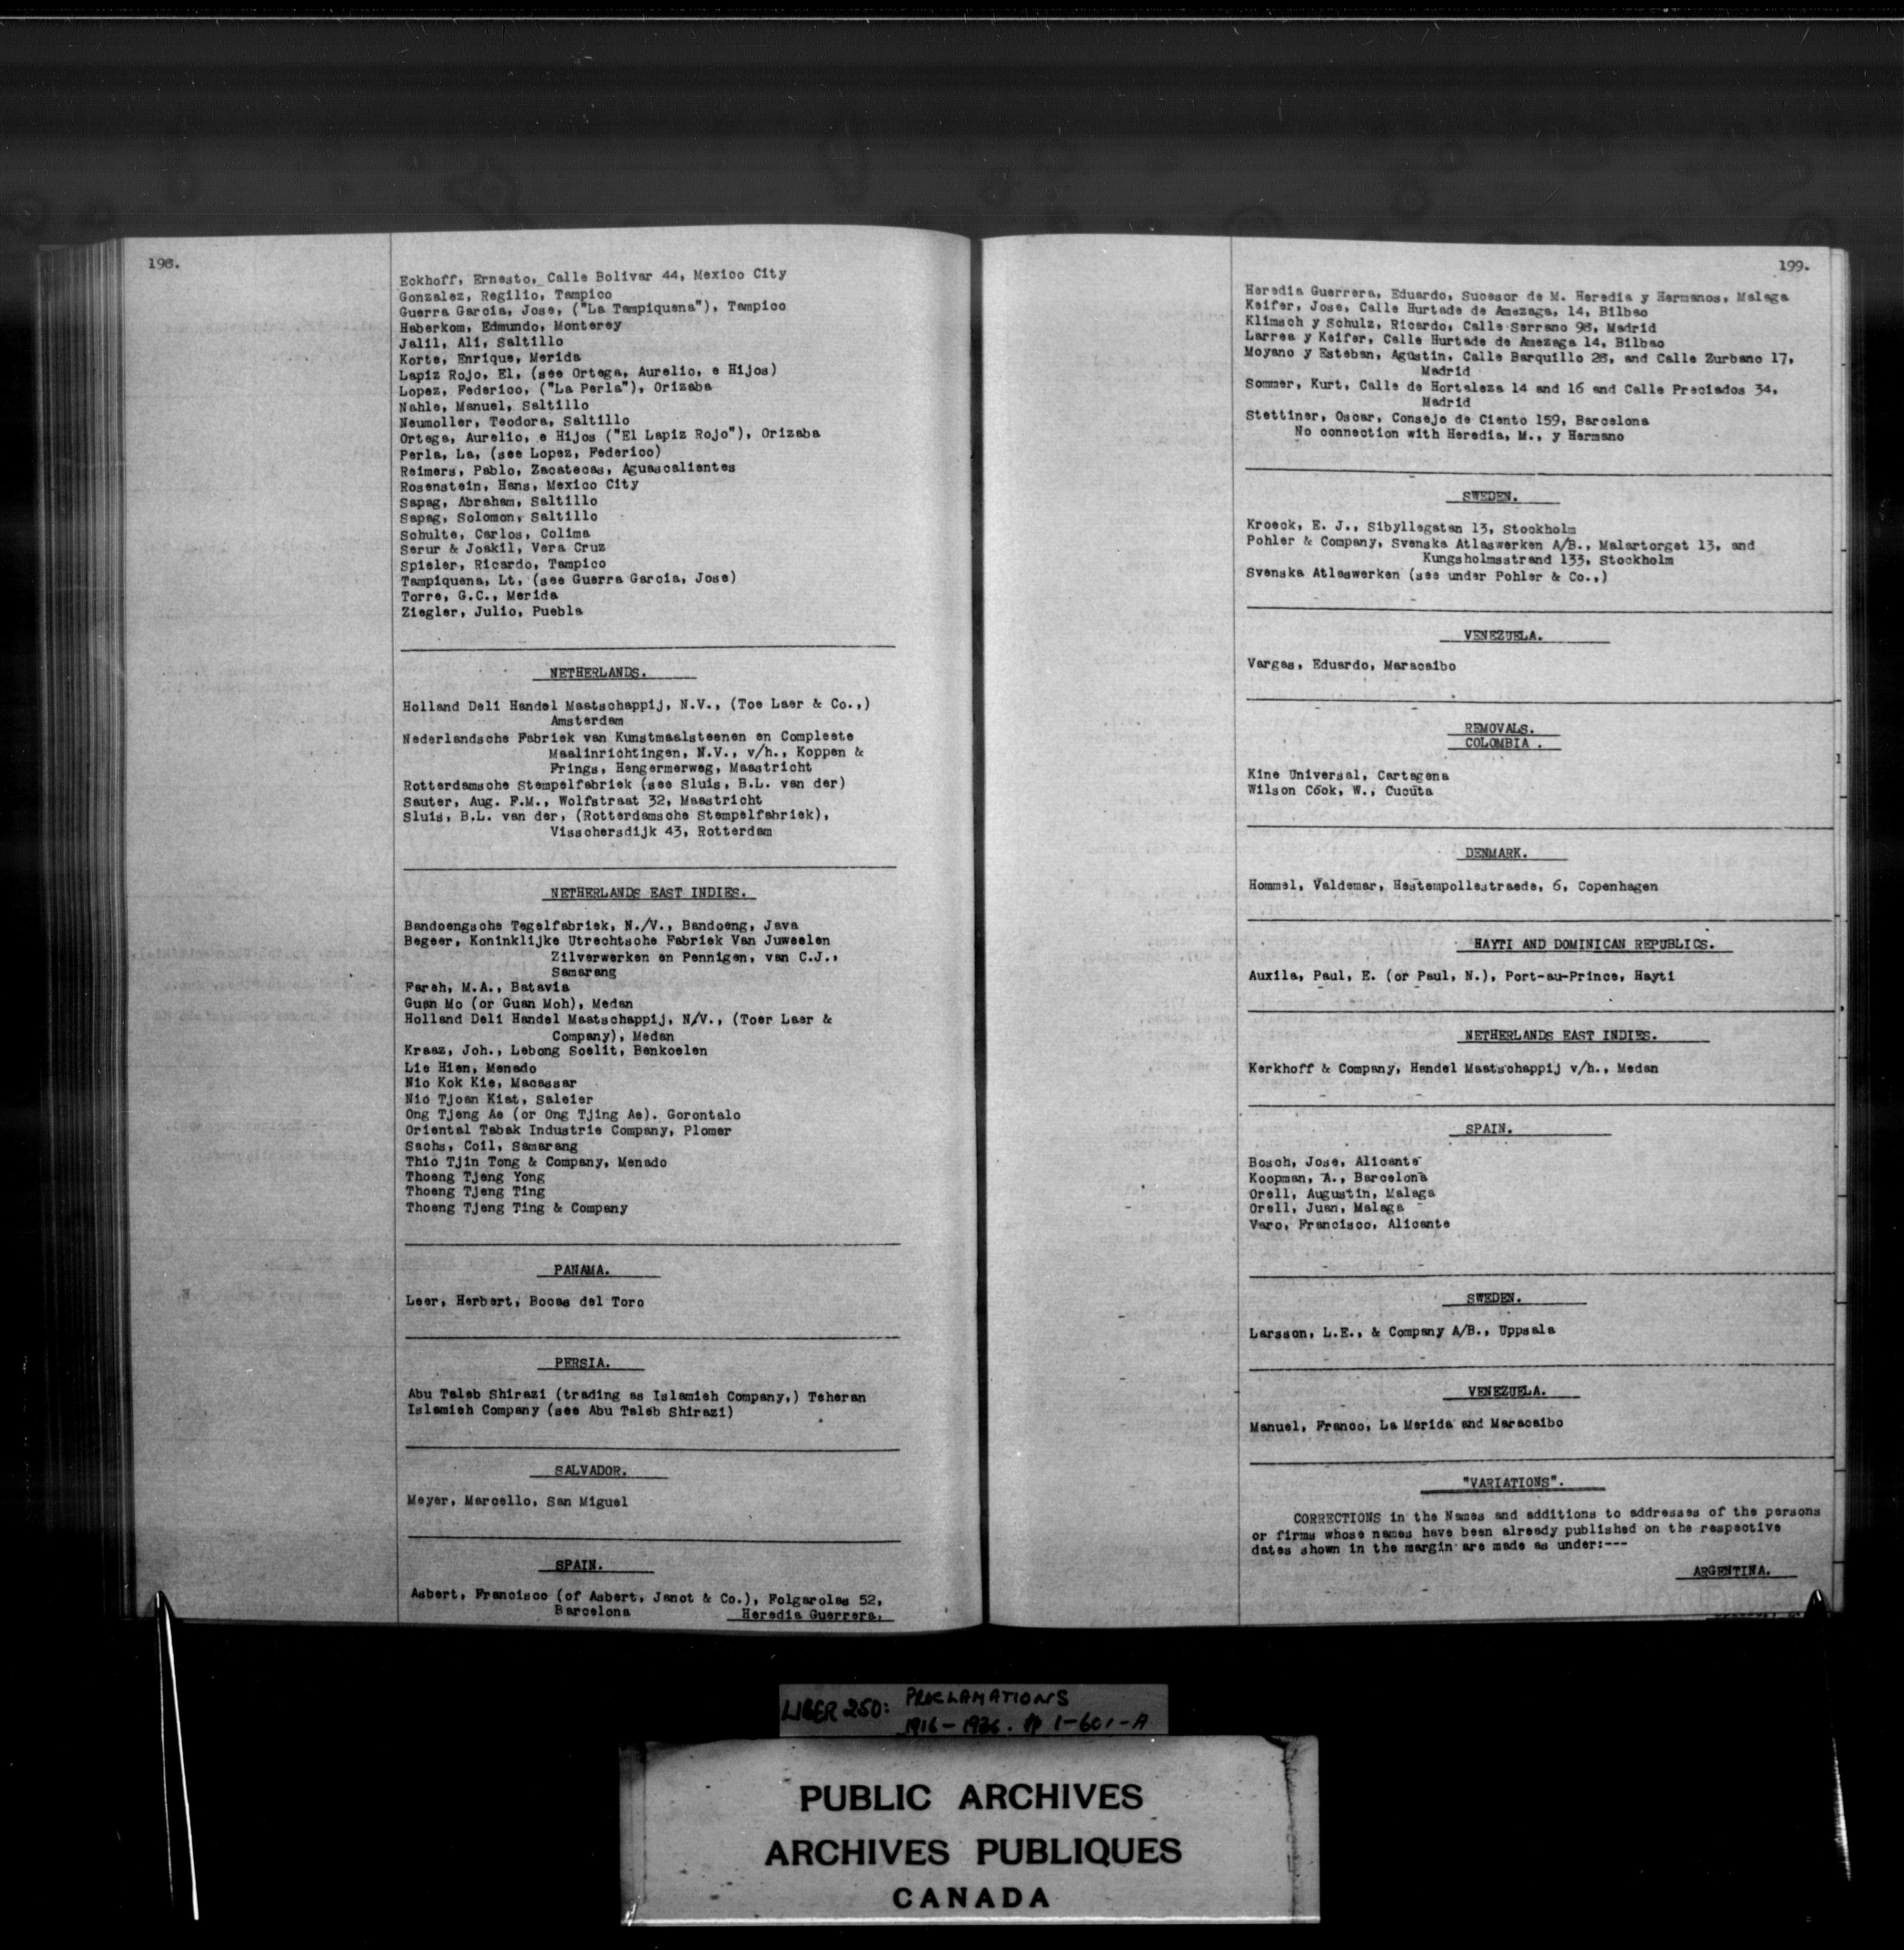 198.
Eckhoff, Ernesto, Calle Bolivar 44, Mexico City
Gonzalez, Regilio, Tampico
Guerra Garcia, Jose, ("La Tampiquena"), Tampico
Haberkom, Edmundo, Monterey
Jalil, Ali, Saltillo
Korte, Enrique, Merida
Lapiz Rojo, El, (see Ortega, Aurelio, e Hijos)
Lopez, Federico, ("La Perla"), Orizaba
Nahle, Manuel, Saltillo
Neumoller, Teodora, Saltillo
Ortega, Aurelio, e Hijos ("El Lapiz Rojo"), Orizaba
Perla, La, (see Lopez, Federico)
Reimers, Pablo, Zacatecas, Aguascalientes
Rosenstein, Hans, Mexico City
Sapag, Abraham, Saltillo
Sapag, Solomon, Saltillo
Schulte, Carlos, Colima
Serur & Joakil, Vera Cruz
Spieler, Ricardo, Tampico
Tampiquena, Lt, (see Guerra Garcia, Jose)
Torre, G.C., Merida
Ziegler, Julio, Puebla
NETHERLANDS.
Holland Deli Handel Maatschappij, N.V., (Toe Laer & Co.,)
Amsterdam
Nederlandsche Fabriek van Kunstmaalsteenen en Compleete
Maalinrichtingen, N.V., v/h., Koppen &
Frings, Hengermerweg, Maastricht
Rotterdamsche Stempelfabriek (see Sluis, B.L. van der)
Sauter, Aug. F.M., Wolfstraat 32, Maastricht
Sluis, B.L. van der, (Rotterdamsche Stempelfabriek),
Visschersdijk 43, Rotterdam
NETHERLANDS EAST INDIES.
Bandoengsche Tegelfabriek, N./V., Bandoeng, Java
Begeer, Koninklijke Utrechtsche Fabriek Van Juweelen
Zilverwerken en Pennigen, van C.J.,
Samarang
Farah, M.A., Batavia
Guan Mo (or Guan Moh), Medan
Holland Deli Handel Maatschappij, N/V., (Toer Laer &
Company), Medan
Kraaz, Joh., Lebong Soelit, Benkoelen
Lie Hien, Menado
Nio Kok Kie, Macassar
Nio Tjoan Kiat, Saleier
Ong Tjeng Ae (or Ong Tjing Ae). Gorontalo
Oriental Tabak Industrie Company, Plomar
Sachs, Coil, Samarang
Thio Tjin Tong & Company, Menado
Thoeng Tjeng Yong
Thoeng Tjeng Ting
Thoeng Tjeng Ting & Company
PANAMA.
Leer, Herbert, Bocas del Toro
PERSIA.
Abu Taleb Shirazi (trading as Islamieh Company,) Teheran
Islamieh Company (see Abu Taleb Shirazi)
SALVADOR.
Meyer, Marcello, San Miguel
SPAIN.
Asbert, Francisco (of Asbert, Janot & Co.), Folgarolas 52,
Barcelona
Heredia Guerrera,
199.
Heredia Guerrera, Eduardo, Sucesor de M. Heredia y Hermanos, Malaga
Keifer, Jose, Calle Hurtade de Amezaga, 14, Bilbao
Klimsch y Schulz, Ricardo, Calle Serrano 98, Madrid
Larrea y Keifer, Calle Hurtade de Amezaga 14, Bilbao
Moyano y Esteban, Agustin, Calle Barquillo 28, and Calle Zurbano 17,
Madrid
Sommer, Kurt, Calle de Hortaleza 14 and 16 and Calle Preciados 34,
Madrid
Stettiner, Oscar, Consejo de Ciento 159, Barcelona
No connection with Heredia, M., y Hermano
SWEDEN.
Kroeck, E. J., Sibyllegatan 13, Stockholm
Pohler & Company, Svenska Atlaswerken A/B., Malartorget 13, and
Kungsholmsstrand 133, Stockholm
Svenska Atlaswerken (see under Pohler & Co.,)
VENEZUELA.
Vargas, Eduardo, Maracaibo
REMOVALS.
COLOMBIA.
Kine Universal, Cartagena
Wilson Cook, W., Cucuta
DENMARK.
Hommel, Valdemar, Hestempollestraede, 6, Copenhagen
HAYTI AND DOMINICAN REPUBLICS.
Auxila, Paul, E. (or Paul, N.), Port-au-Prince, Hayti
NETHERLANDS EAST INDIES.
Kerkhoff & Company, Handel Maatschappij v/h., Medan
SPAIN.
Bosch, Jose, Alicante
Koopman, A., Barcelona
Orell, Augustin, Malaga
Orell, Juan, Malaga
Varo, Francisco, Alicante
SWEDEN.
Larsson, L.E., & Company A/B., Uppsala
VENEZUELA.
Manuel, Franco, La Merida and Maracaibo
"VARIATIONS".
CORRECTIONS in the Names and additions to addresses of the persons
or firms whose names have been already published on the respective
dates shown in the margin are made as under:---
ARGENTINA.
LIBER 250: PROCLAMATIONS
1916-1936. pp 1-601-A
PUBLIC ARCHIVES
ARCHIVES PUBLIQUES
CANADA